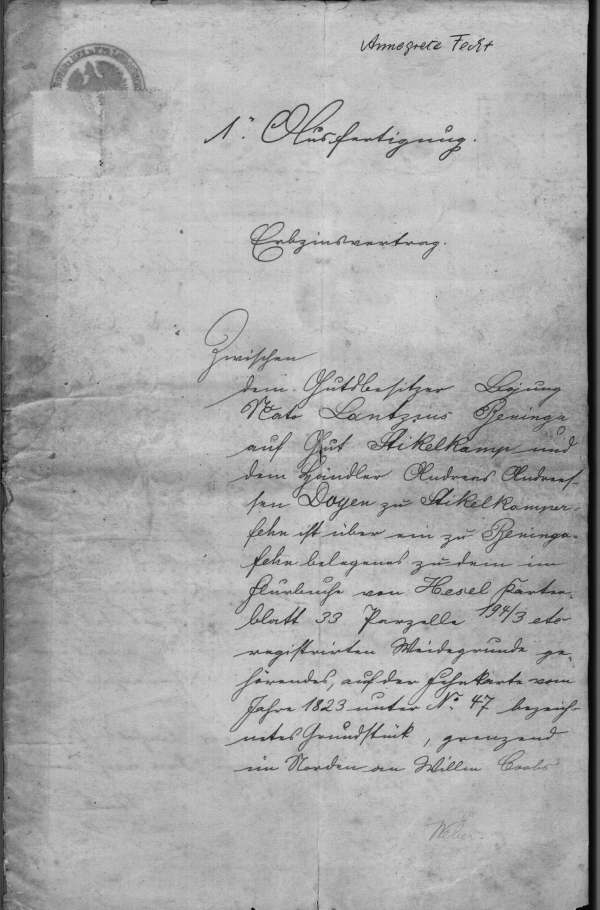 Annegrete Fecht
1te Ausfertigung.
Erbzinsvertrag.
Zwischen
dem Gutsbesitzer Bojung
Lantzius Beninga
auf Gut Stikelkamp und
dem Händler Andreas Andrees-
sen Doyen zu Stikelkamper-
fehn ist über ein zu Beninga-
fehn belegenes zu dem im
Flurbuche von Hesel Karten-
blatt 33 Parzelle 194/3 etc
registrirten Weidegrunde ge-
hörendes, auf der Fehnkarte vom
Jahre 1823 unter No. 47 bezeich-
netes Grundstück, grenzend
im Norden an Willm